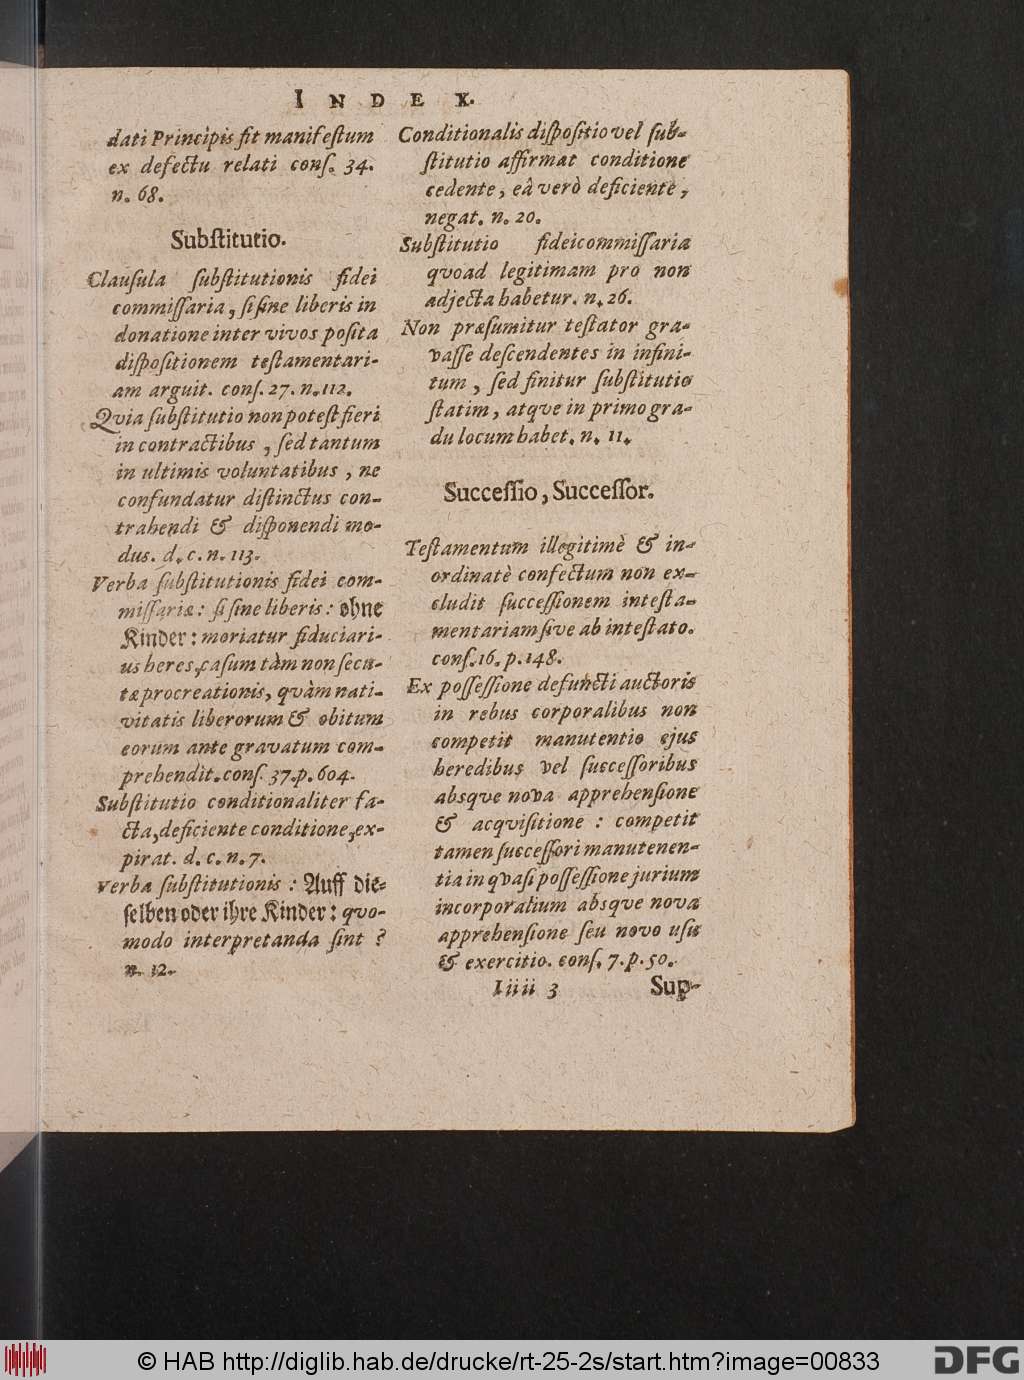 INDEX.
dati Principis fit manifeſtum
ex defectu relati conſ. 34.
n. 68.
Subſtitutio.
Clauſula ſubſtitutionis fidei
commiſſaria, ſi ſine liberis in
donatione inter vivos poſita
diſpoſitionem teſtamentari-
am arguit. conſ. 27. n. 112.
Qvia ſubſtitutio non poteſt fieri
in contractibus, ſed tantum
in ultimis voluntatibus, ne
confundatur diſtinctus con-
trahendi & diſponendi mo-
dus. d. c. n. 113.
Verba ſubſtitutionis fidei com-
miſſariæ: ſi ſine liberis: ohne
Kinder: moriatur fiduciari-
us heres, caſum tàm non ſecu-
tæ procreationis, qvàm nati-
vitatis liberorum & obitum
eorum ante gravatum com-
prehendit. conſ. 37. p. 604.
Subſtitutio conditionaliter fa-
cta, deficiente conditione, ex-
pirat. d. c. n. 7.
Verba ſubſtitutionis: Auff die-
ſelben oder ihre Kinder: qvo-
modo interpretanda ſint?
n. 12.
Conditionalis diſpoſitio vel ſub-
ſtitutio affirmat conditione
cedente, eâ verò deficiente,
negat. n. 20.
Subſtitutio fideicommiſſaria
qvoad legitimam pro non
adjecta habetur. n. 26.
Non præſumitur teſtator gra-
vaſſe deſcendentes in infini-
tum, ſed finitur ſubſtitutio
ſtatim, atqve in primo gra-
du locum habet. n. 11.
Succeſſio, Succeſſor.
Teſtamentum illegitimè & in-
ordinatè confectum non ex-
cludit ſucceſſionem inteſta-
mentariam ſive ab inteſtato.
conſ. 16. p. 148.
Ex poſſeſſione defuncti auctoris
in rebus corporalibus non
competit manutentio ejus
heredibus vel ſucceſſoribus
absqve nova apprehenſione
& acqviſitione: competit
tamen ſucceſſori manutenen-
tia in qvaſi poſſeſſione jurium
incorporalium absqve nova
apprehenſione ſeu novo uſu
& exercitio. conſ. 7. p. 50.
Iiiii 3
Sup-
© HAB http://diglib.hab.de/drucke/rt-25-2s/start.htm?image=00833
DFG